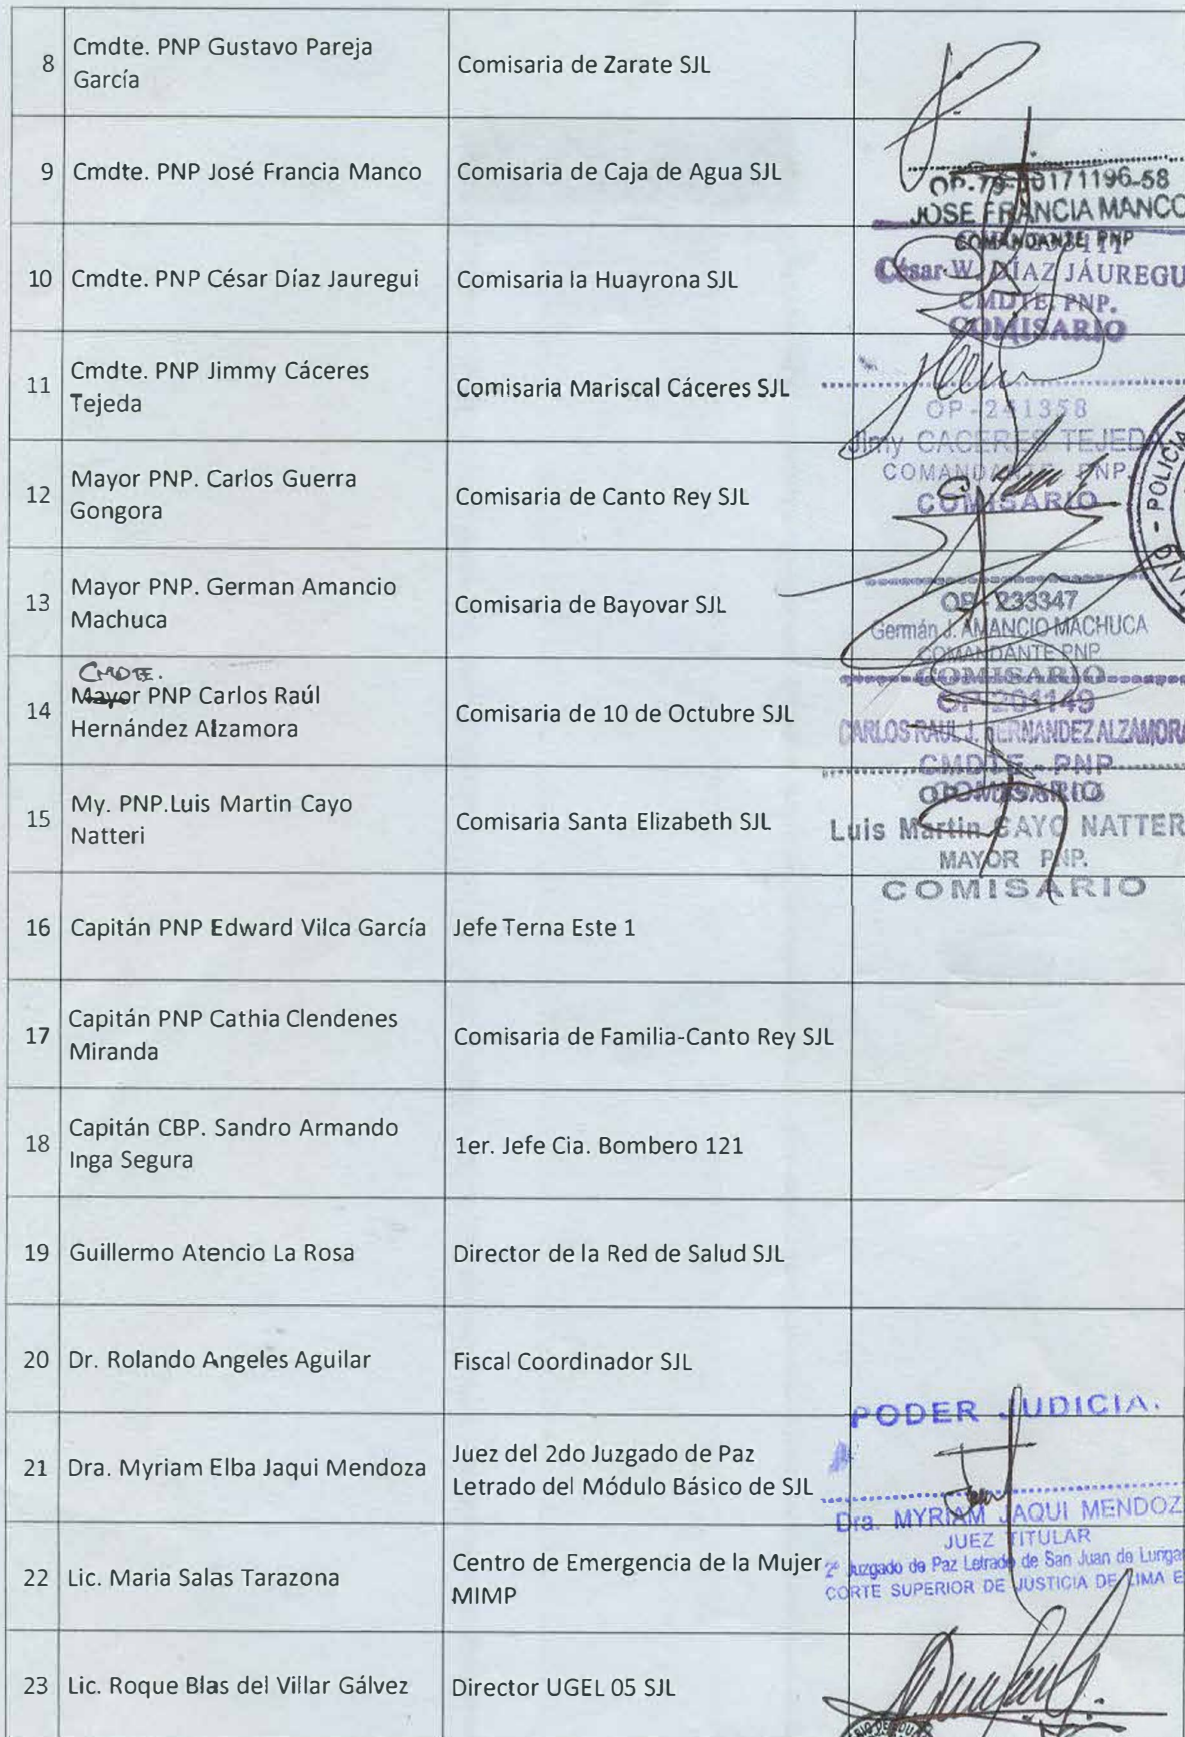 8
Cmdte. PNP Gustavo Pareja
García
Comisaria de Zarate SJL
9
Cmdte. PNP José Francia Manco
Comisaria de Caja de Agua SJL
171196-58
JOSE FRANCIA MANCO
COMANDANTE PNP
10
Cmdte. PNP César Díaz Jauregui
Comisaria la Huayrona SJL
César W. DÍAZ JÁUREGU
CMDTE. PNP.
COMISARIO
11
Cmdte. PNP Jimmy Cáceres
Tejeda
Comisaria Mariscal Cáceres SJL
OP-241358
Jimy CACERES TEJEDA
COMANDANTE PNP
COMISARIO
12
Mayor PNP. Carlos Guerra
Gongora
Comisaria de Canto Rey SJL
POLICIA
13
Mayor PNP. German Amancio
Machuca
Comisaria de Bayovar SJL
OP- 233347
Germán J. AMANCIO MACHUCA
COMANDANTE PNP
COMISARIO
14
CMDTE.
Mayor PNP Carlos Raúl
Hernández Alzamora
Comisaria de 10 de Octubre SJL
OP-201149
CARLOS RAUL J. HERNANDEZ ALZAMORA
CMDTE - PNP
COMISARIO
15
My. PNP.Luis Martin Cayo
Natteri
Comisaria Santa Elizabeth SJL
Luis Martin CAYO NATTER
MAYOR PNP.
COMISARIO
16
Capitán PNP Edward Vilca García
Jefe Terna Este 1
17
Capitán PNP Cathia Clendenes
Miranda
Comisaria de Familia-Canto Rey SJL
18
Capitán CBP. Sandro Armando
Inga Segura
1er. Jefe Cia. Bombero 121
19
Guillermo Atencio La Rosa
Director de la Red de Salud SJL
20
Dr. Rolando Angeles Aguilar
Fiscal Coordinador SJL
PODER JUDICIA.
21
Dra. Myriam Elba Jaqui Mendoza
Juez del 2do Juzgado de Paz
Letrado del Módulo Básico de SJL
Dra. MYRIAM JAQUI MENDOZ
JUEZ TITULAR
2° Juzgado de Paz Letrado de San Juan de Lurigan
CORTE SUPERIOR DE JUSTICIA DE LIMA E
22
Lic. Maria Salas Tarazona
Centro de Emergencia de la Mujer
MIMP
23
Lic. Roque Blas del Villar Gálvez
Director UGEL 05 SJL